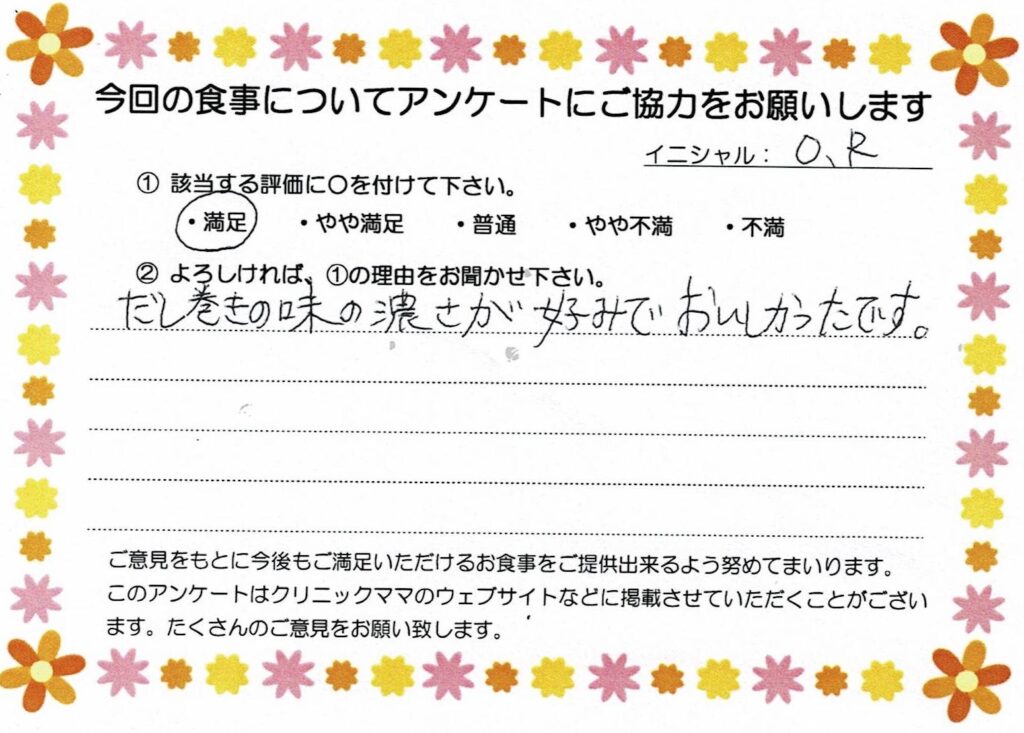 今回の食事についてアンケートにご協力をお願いします
イニシャル： O、R
① 該当する評価に〇を付けて下さい。
・満足 ・やや満足 ・普通 ・やや不満 ・不満
② よろしければ、①の理由をお聞かせ下さい。
だし巻きの味の濃さが好みでおいしかったです。
ご意見をもとに今後もご満足いただけるお食事をご提供出来るよう努めてまいります。
このアンケートはクリニックママのウェブサイトなどに掲載させていただくことがござい
ます。たくさんのご意見をお願い致します。